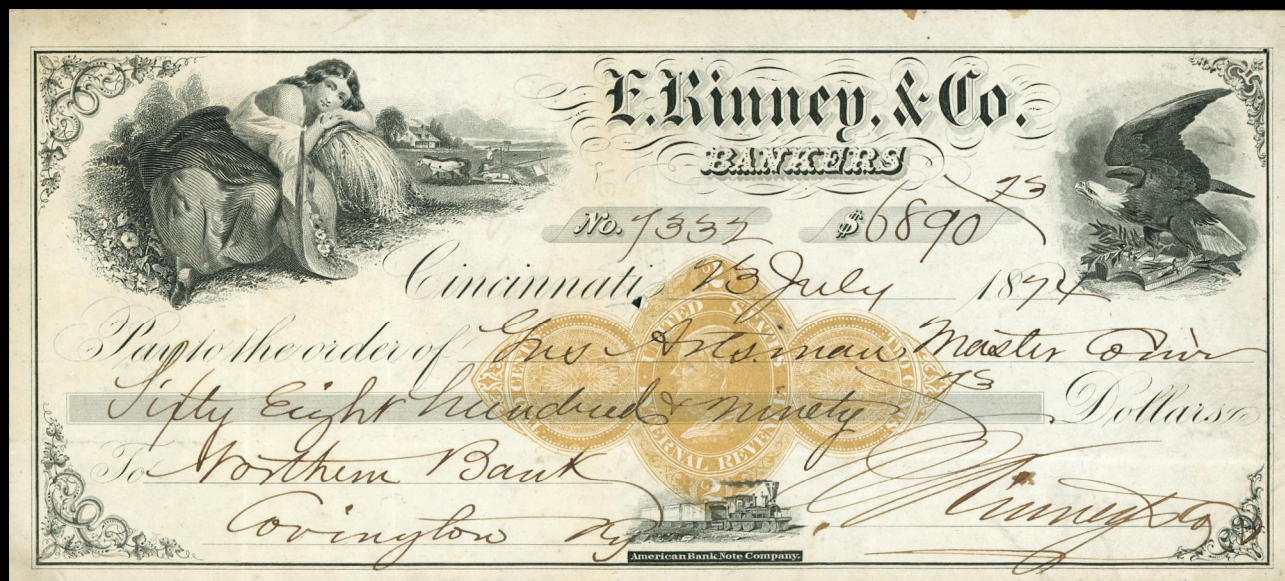 E. Kinney, & Co.
BANKERS
No. 7332 $6890 73
Cincinnati, 23 July 1874
Pay to the order of Gus Artsman Master
Sixty Eight hundred & ninety 73 Dollars
To Northern Bank
Covington Ky
Kinney & Co
UNITED STATES
INTERNAL REVENUE
2
American Bank Note Company.